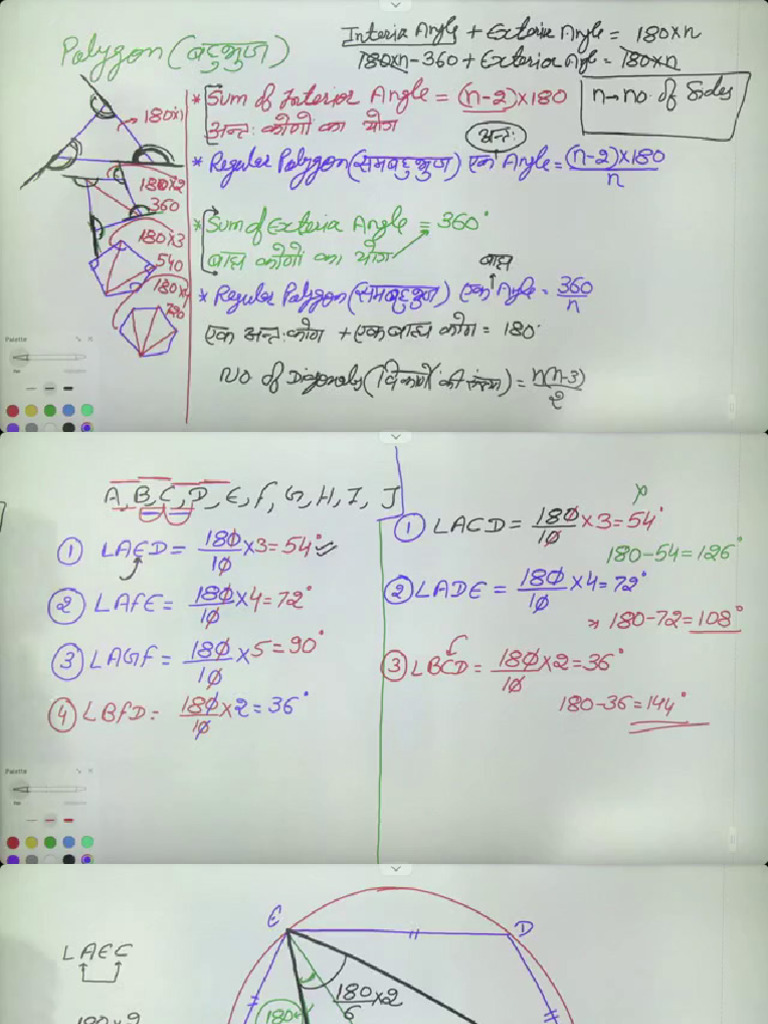 Polygon (बहुभुज)
Interior Angle + Exterior Angle = 180×n
180×n-360 + Exterior Angle = 180×n
n→no. of Sides
* Sum of Interior Angle = (n-2)×180
अन्तः कोणों का योग
अन्तः
* Regular Polygon (समबहुभुज) एक Angle = (n-2)×180
n
* Sum of Exterior Angle = 360°
बाह्य कोणों का योग
बाह्य
* Regular Polygon (समबहुभुज) एक Angle = 360
n
एक अन्तः कोण + एक बाह्य कोण = 180°
No of Digonals (विकर्णों की संख्या) = n(n-3)
2
180×1
180×2
360
180×3
540
180×4
720
Palette
A, B, C, D, E, F, G, H, I, J
① ∠AED = 180/10 ×3 = 54°
② ∠AFE = 180/10 ×4 = 72°
③ ∠AGF = 180/10 ×5 = 90°
④ ∠BFD = 180/10 ×2 = 36°
① ∠ACD = 180/10 ×3 = 54°
180-54 = 126°
② ∠ADE = 180/10 ×4 = 72°
180-72 = 108°
③ ∠BCD = 180/10 ×2 = 36°
180-36 = 144°
Palette
E
D
∠AEC
180×2
180/6 ×2
180